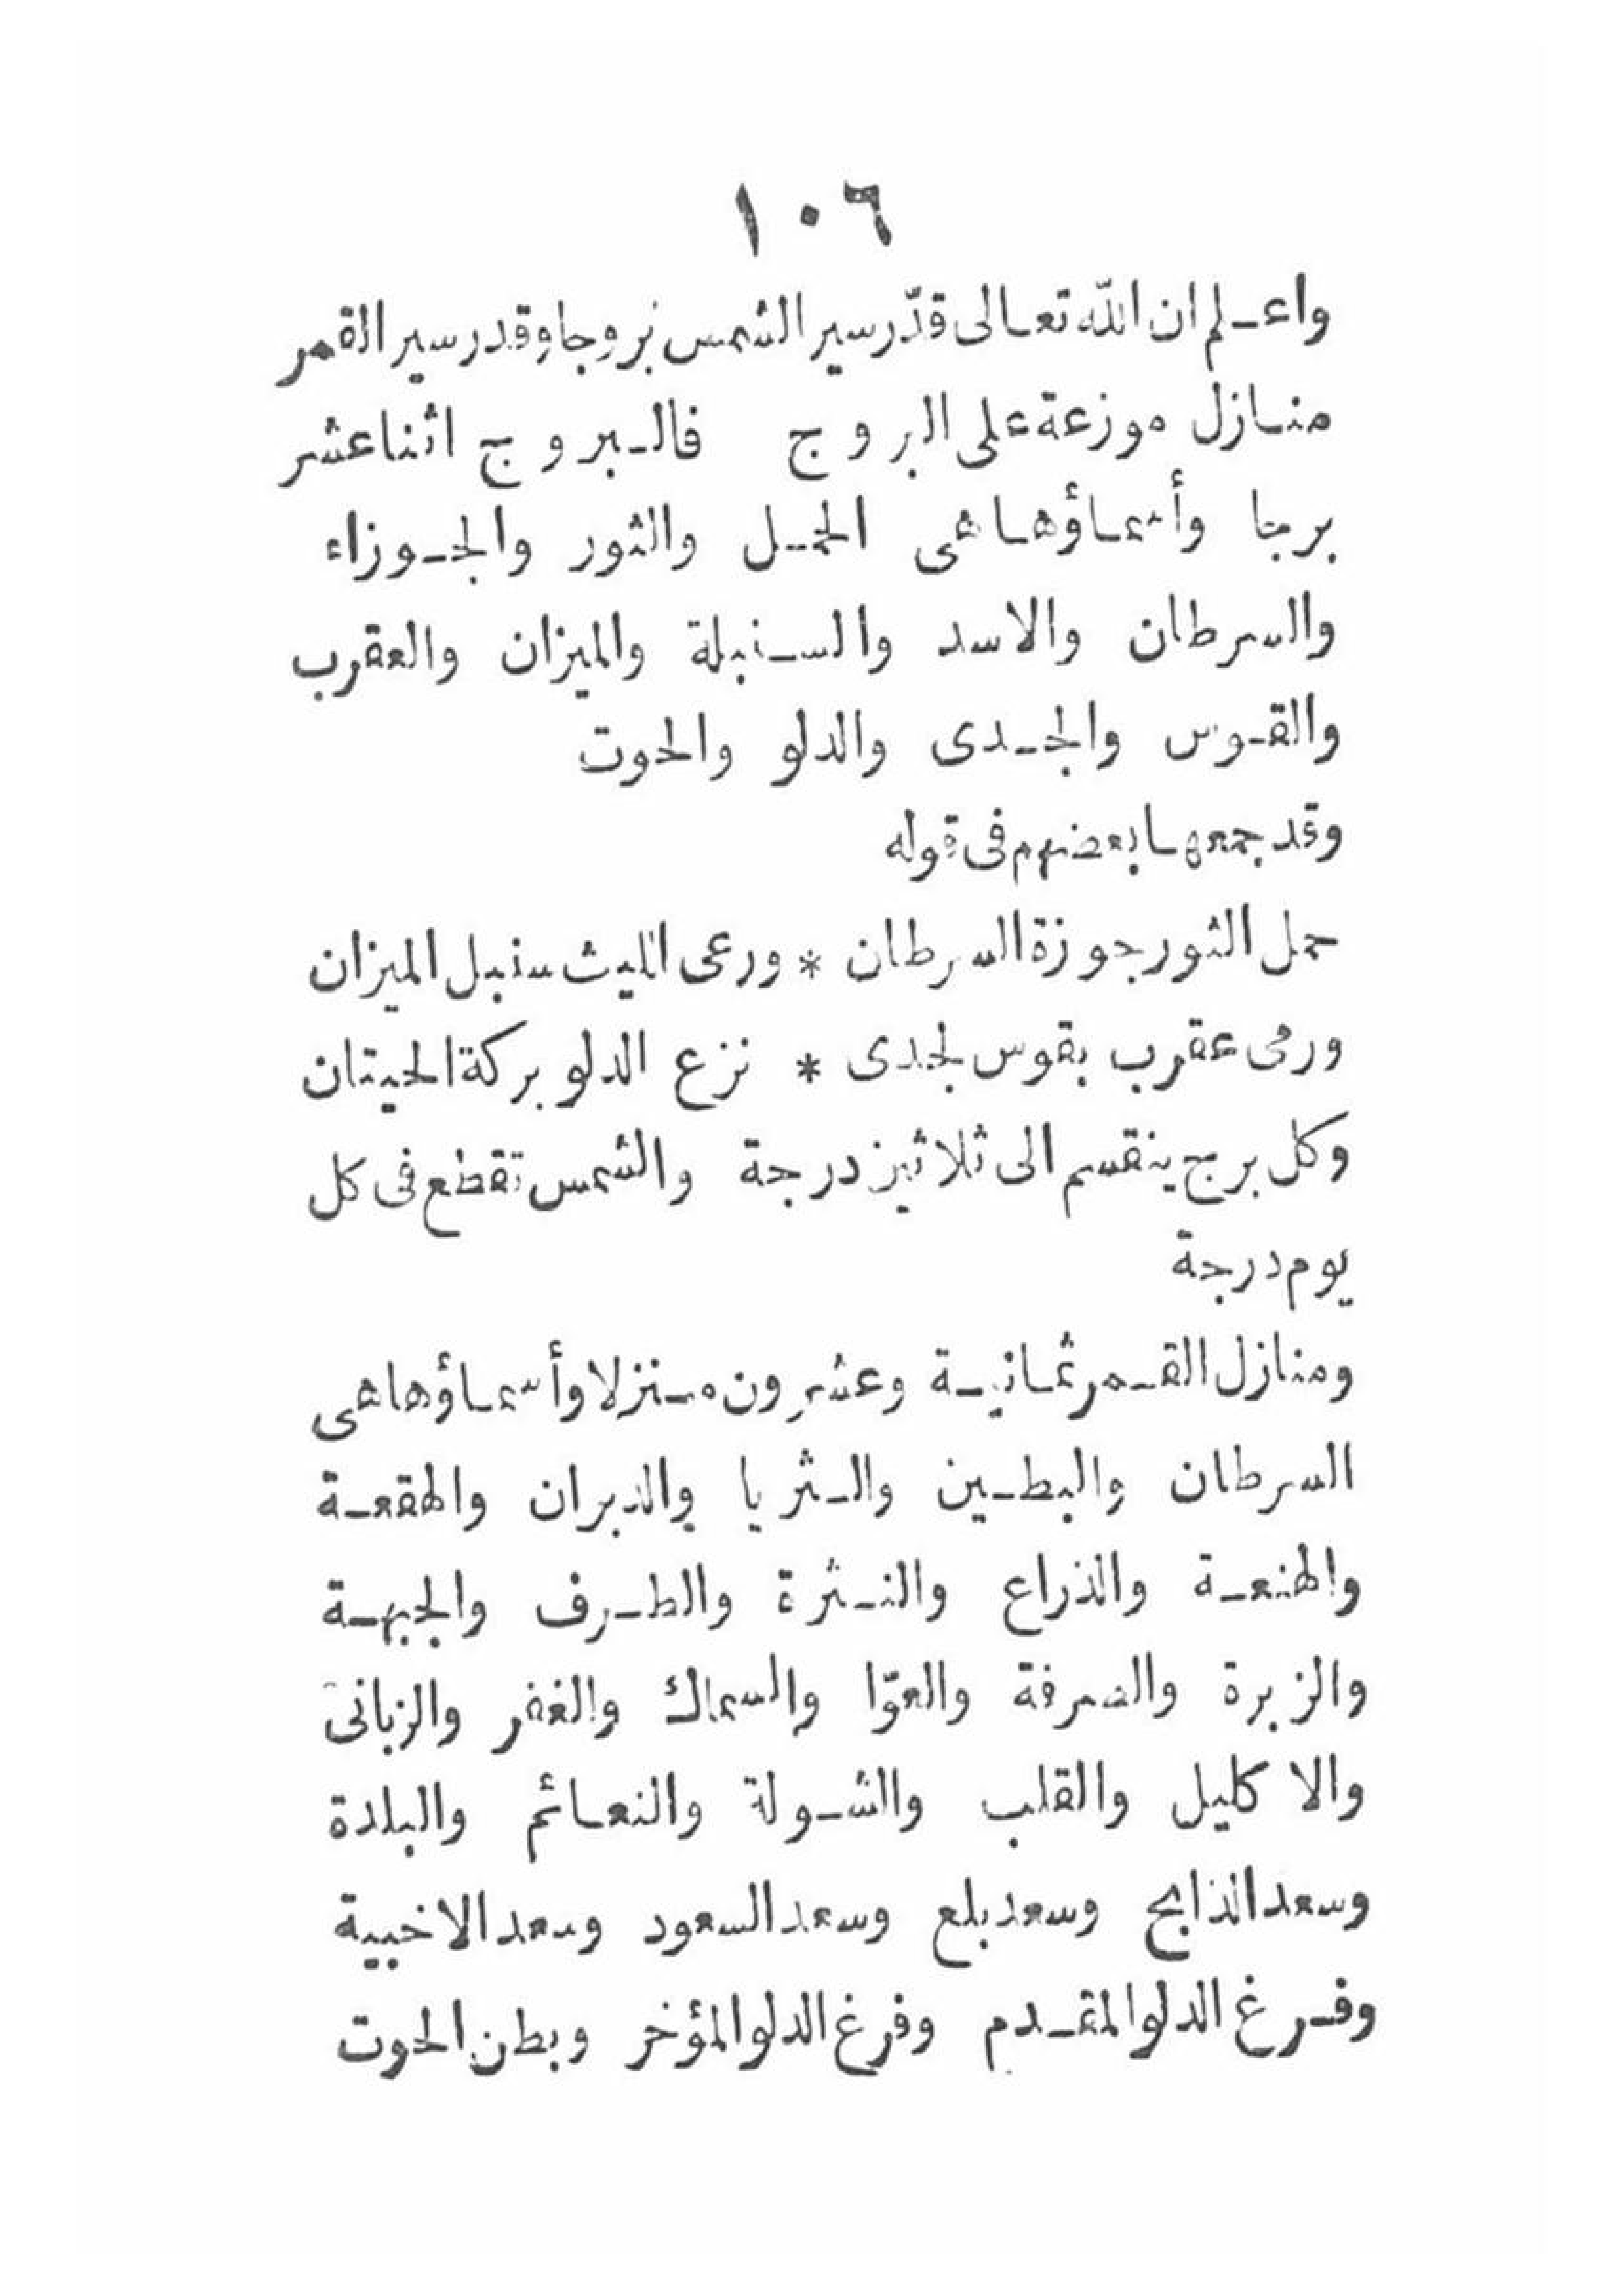 ١٠٦
واعلم ان الله تعالى قدّر سير الشمس بروجا وقدر سير القمر
منازل موزعة على البروج فالبروج اثنا عشر
برجا وأسماؤها هى الحمل والثور والجوزاء
والسرطان والاسد والسنبلة والميزان والعقرب
والقوس والجدى والدلو والحوت
وقد جمعها بعضهم فى قوله
حمل الثور جوزة السرطان * ورعى الليث سنبل الميزان
ورمى عقرب بقوس لجدى * نزع الدلو بركة الحيتان
وكل برج ينقسم الى ثلاثين درجة والشمس تقطع فى كل
يوم درجة
ومنازل القمر ثمانية وعشرون منزلا وأسماؤها هى
السرطان والبطين والثريا والدبران والهقعة
والهنعة والذراع والنثرة والطرف والجبهة
والزبرة والصرفة والعوّا والسماك والغفر والزبانى
والاكليل والقلب والشولة والنعائم والبلدة
وسعد الذابح وسعد بلع وسعد السعود وسعد الاخبية
وفرغ الدلو المقدم وفرغ الدلو المؤخر وبطن الحوت